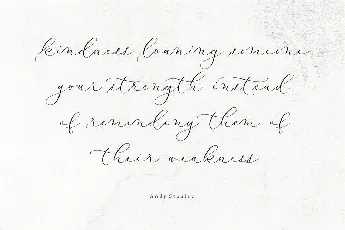 kindness loaning someone
your strength instead
of reminding them of
their weakness
Andy Stanley